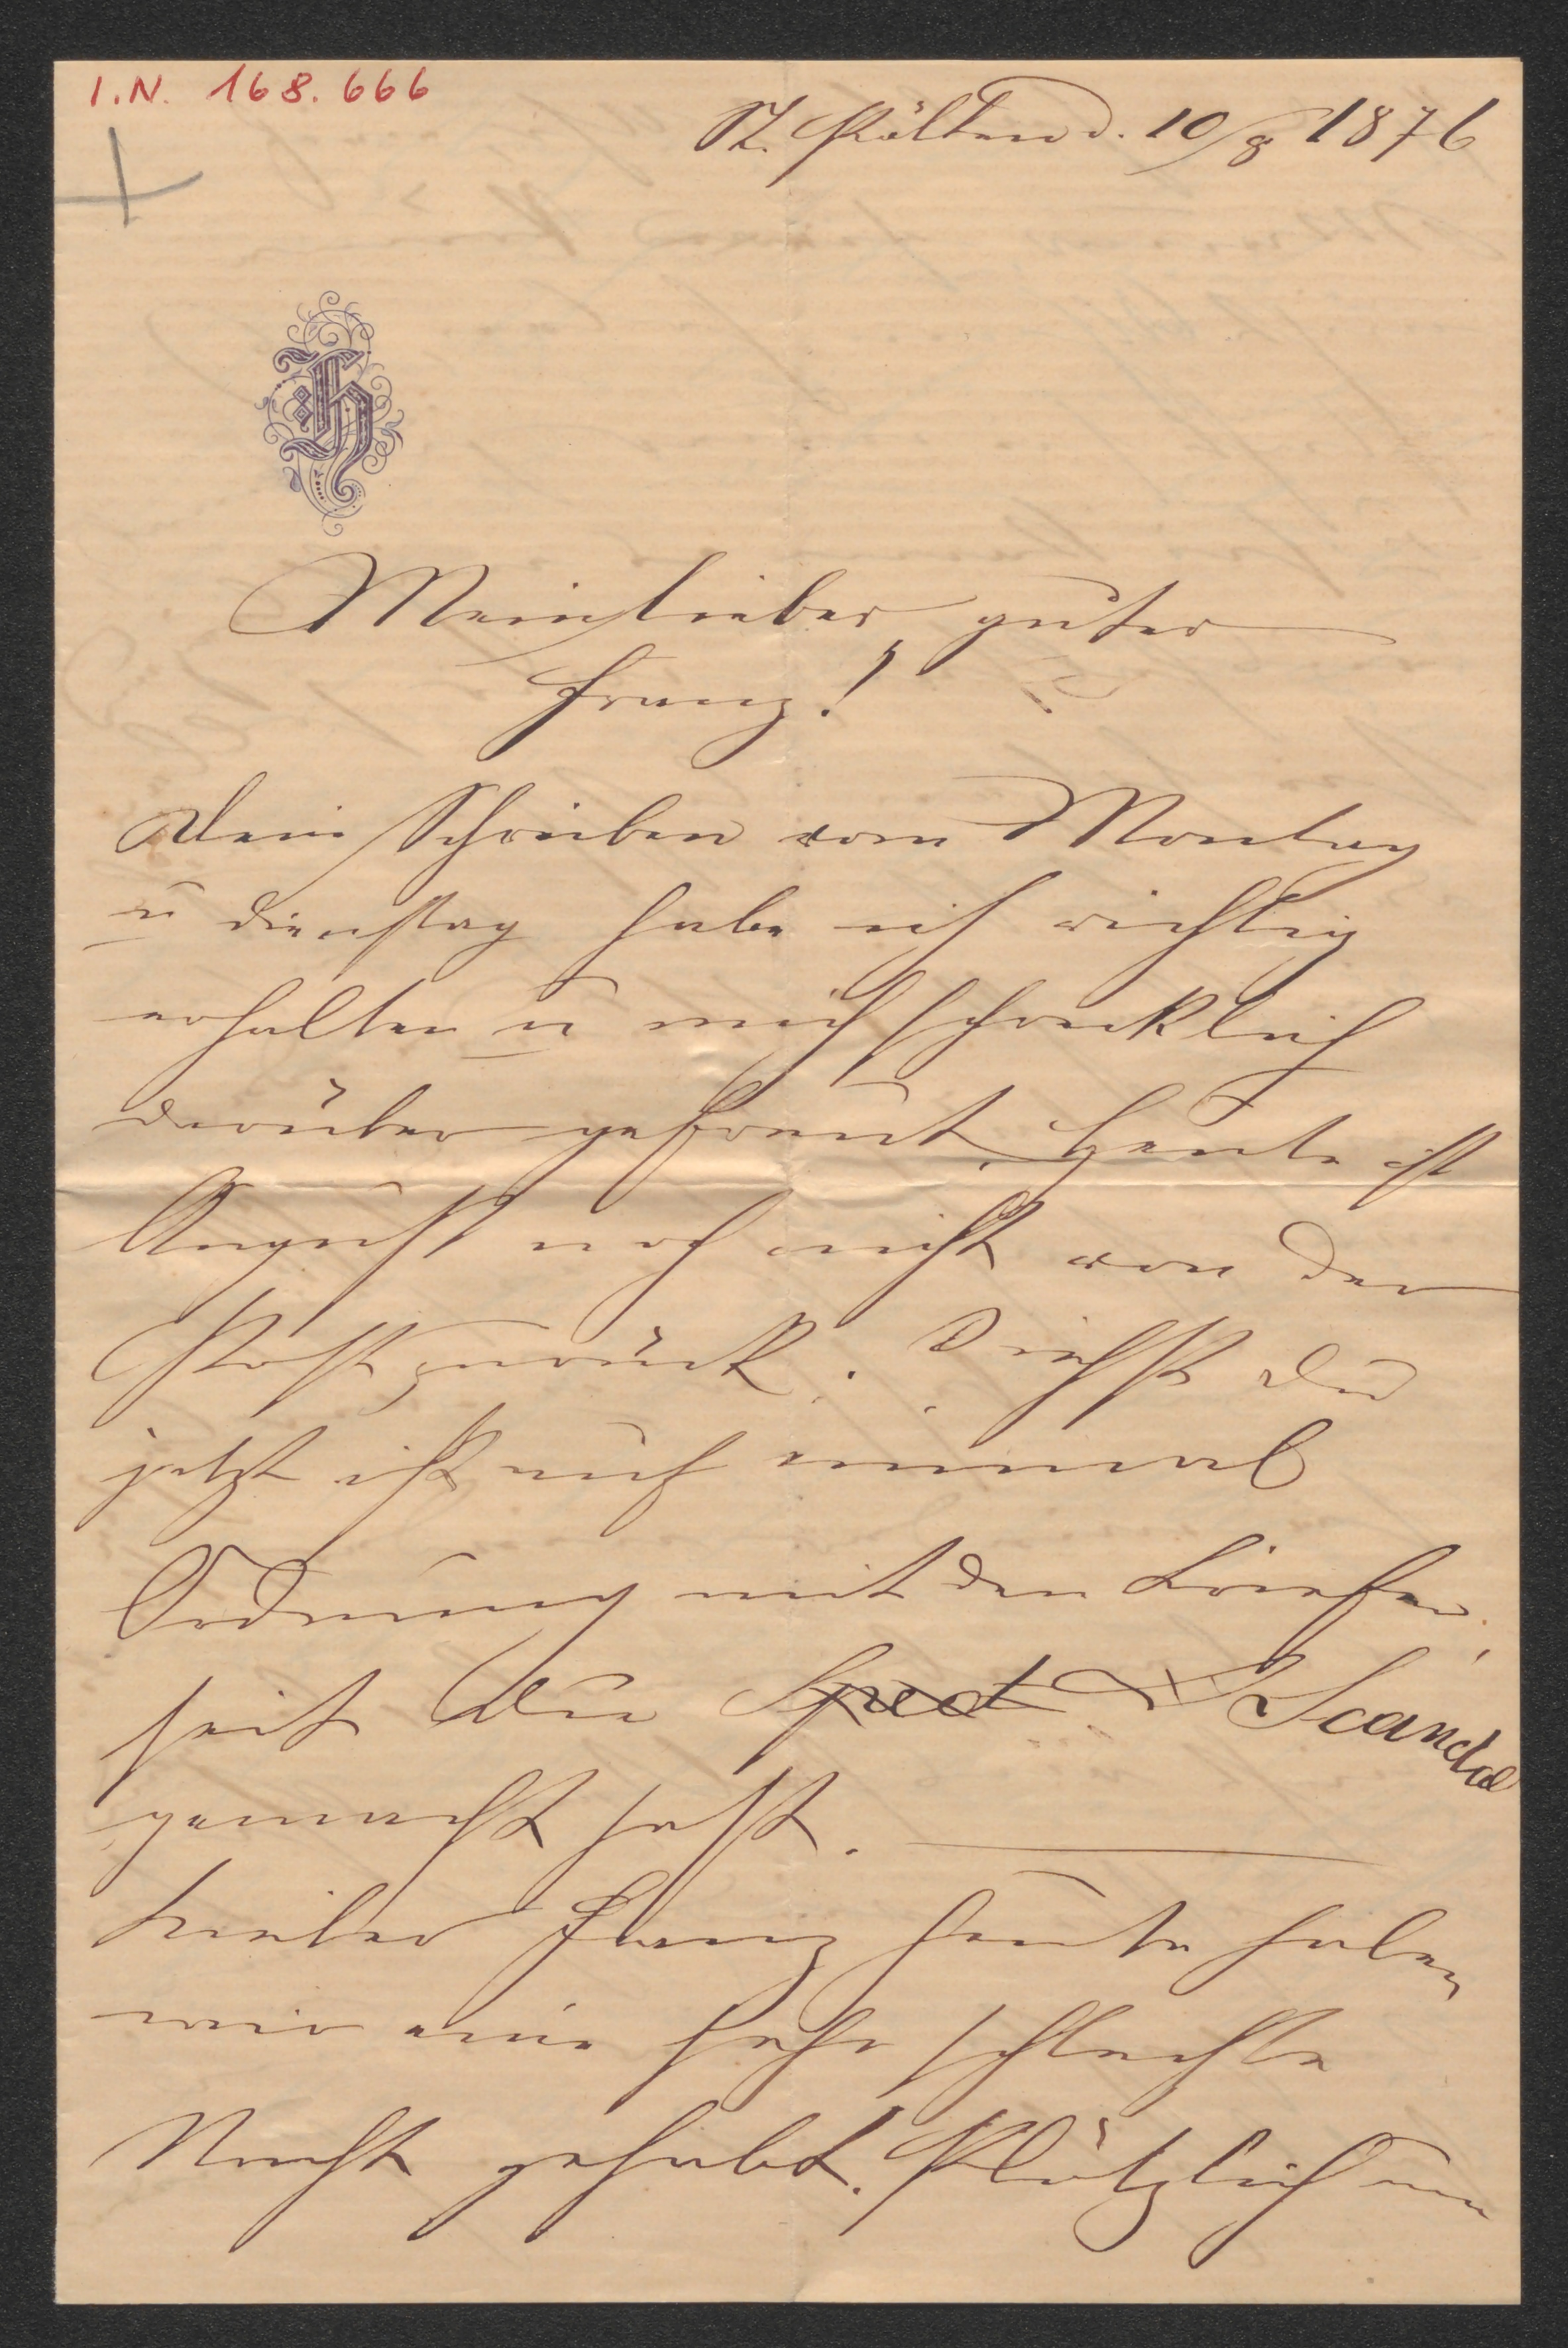 I.N. 168.666
St. Pölten d. 10/8 1876
H
Mein lieber guter
Franz!
Dein Schreiben vom Montag
u Dienstag habe ich richtig
erhalten u mich schrecklich
darüber gefreut. Heute ist
August noch nicht von der
Post zurück. Siehst Du
jetzt ist auf einmal
Ordnung mit den Briefen,
seit Du Scandal
gemacht hast.
Lieber Franz heute haben
wir eine sehr schlechte
Nacht gehabt. Plötzlich um